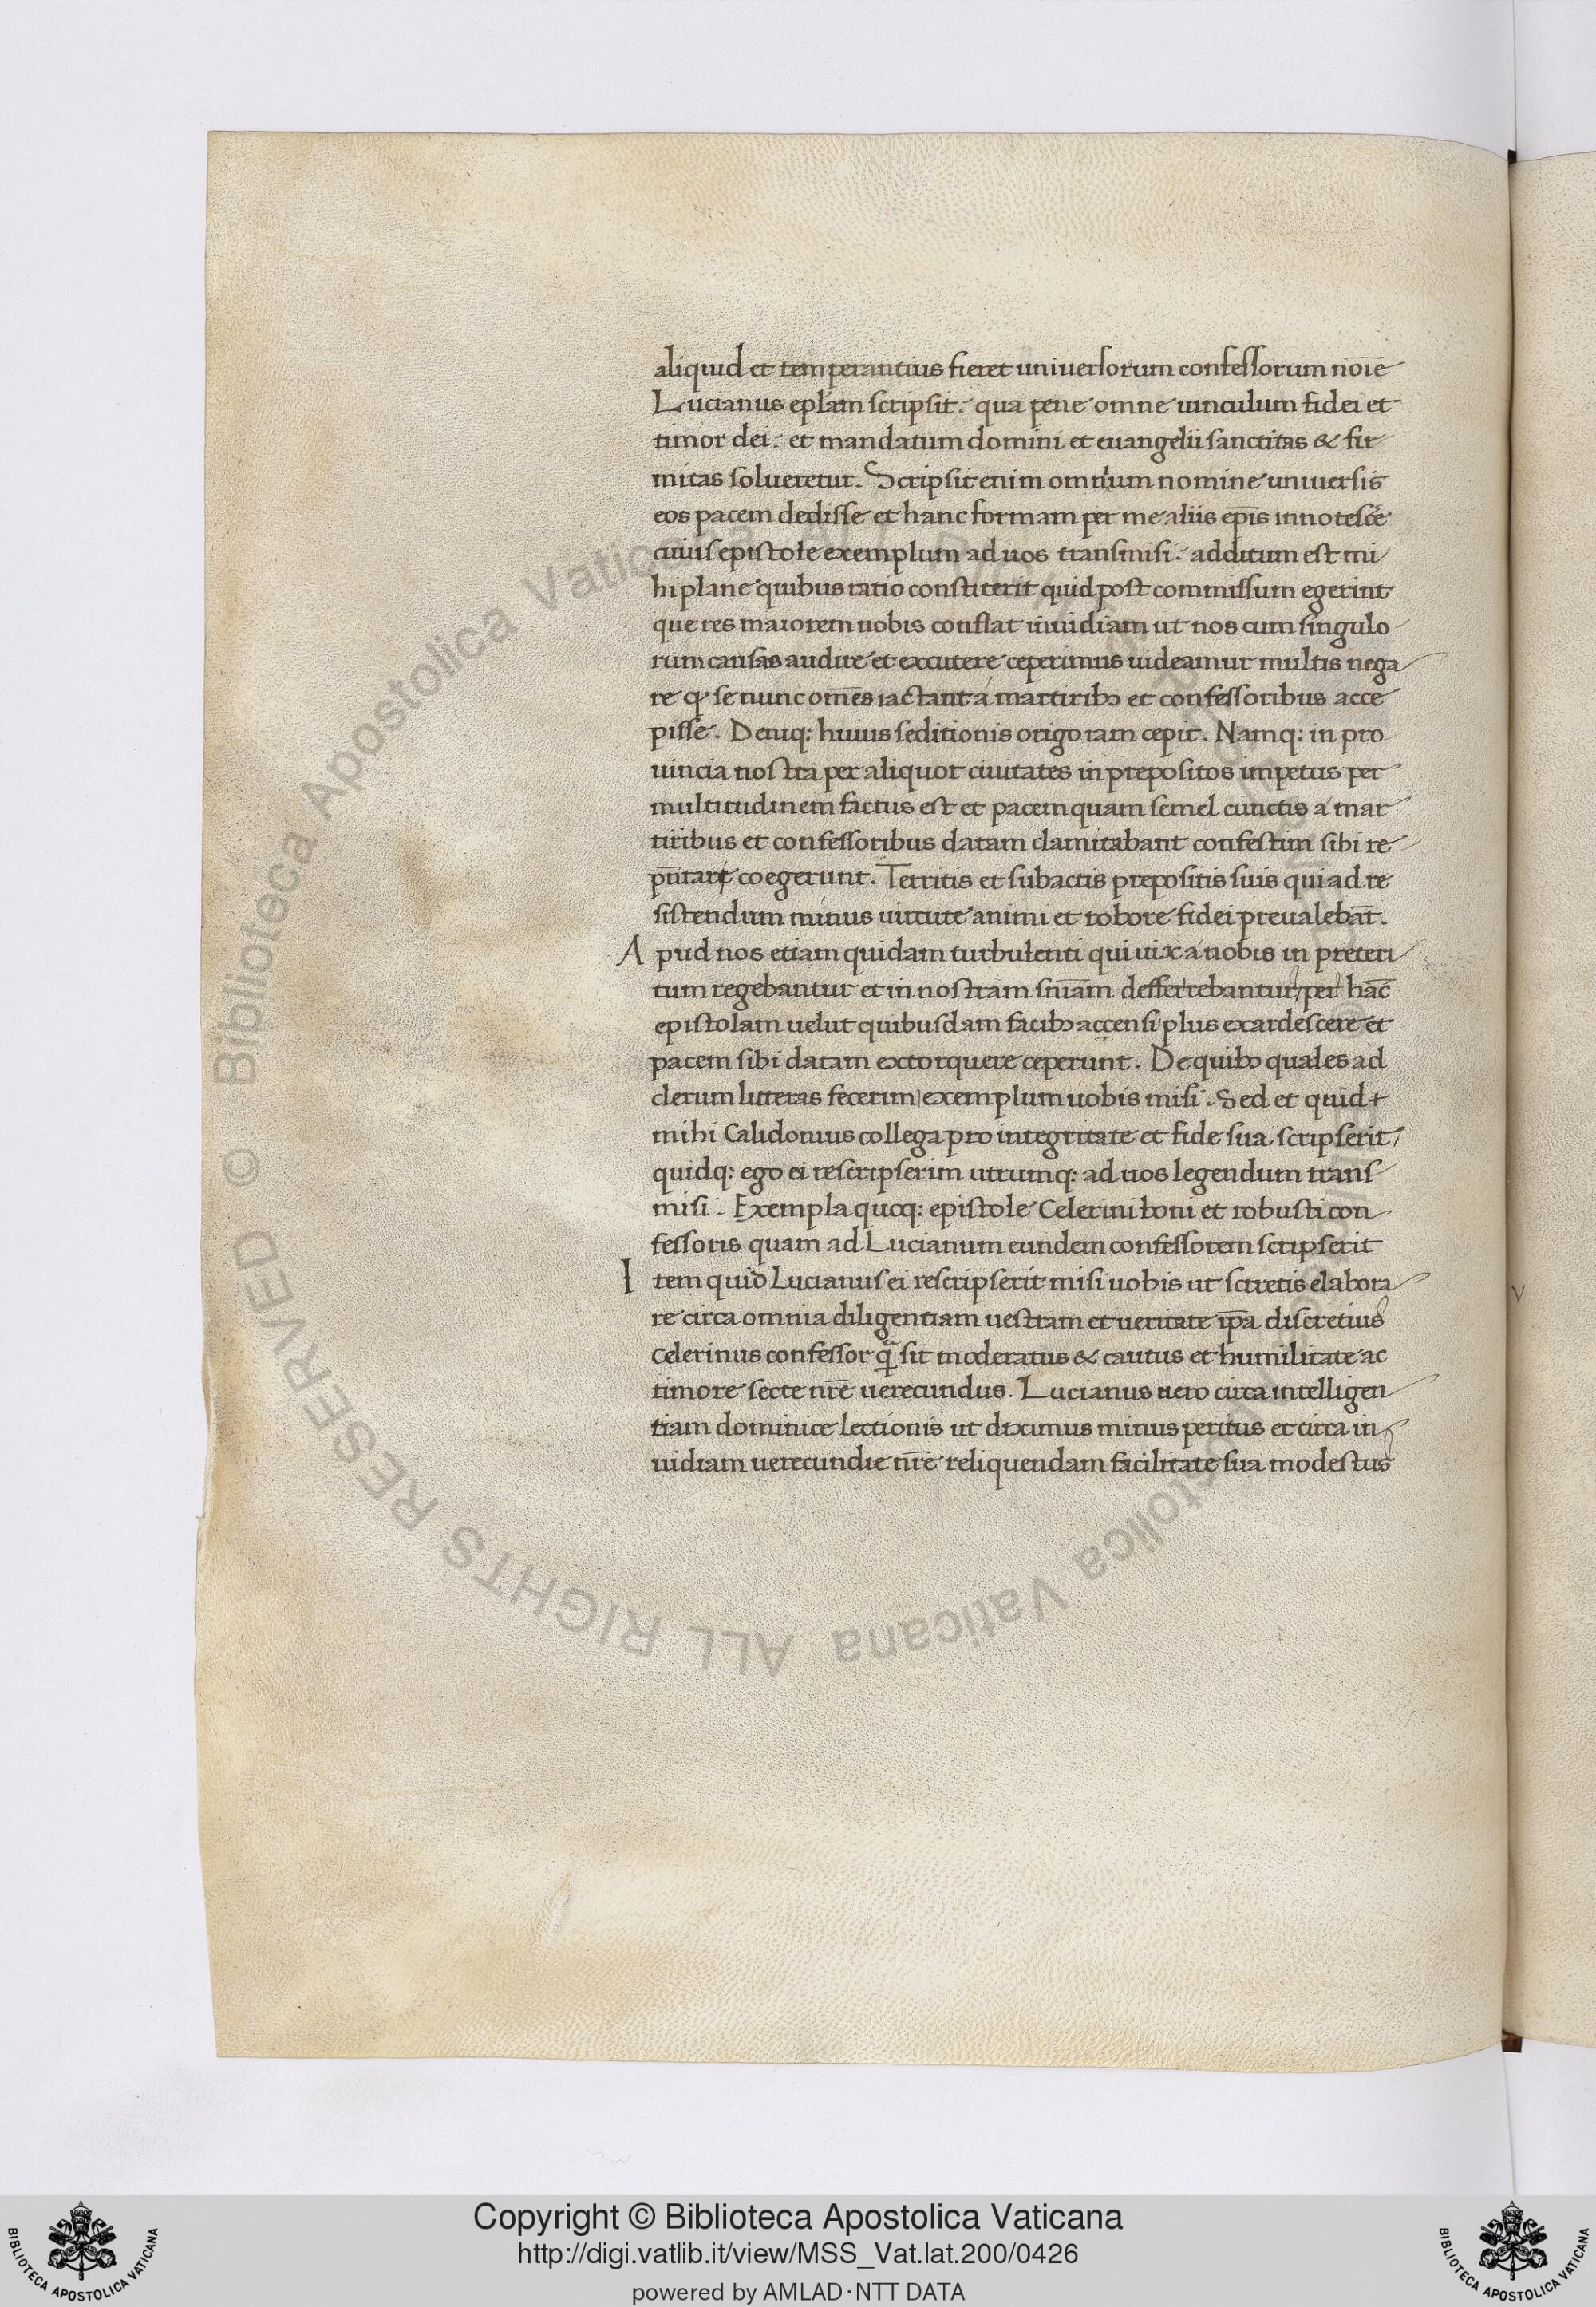 aliquid et temperantius fieret universorum confessorum noīe
Lucianus epłam scripsit. qua pene omne uinculum fidei et
timor dei. et mandatum domini et euangelii sanctitas & fir
mitas solueretur. Scripsit enim omnium nomine uniuersis
eos pacem dedisse et hanc formam per me aliis ep̄is innotescē
cuius epistole exemplum ad uos transmisi. additum est mi
hi plane quibus ratio constiterit quid post commissum egerint
que res maiorem nobis conflat inuidiam ut nos cum singulo
rum causas audire et excutere ceperimus uideamur multis nega
re ꝙ se nunc om̄es iactant a martiribꝫ et confessoribus acce
pisse. Deniq: huius seditionis origo iam cepit. Namq: in pro
uincia nostra per aliquot ciuitates in prepositos impetus per
multitudinem factus est et pacem quam semel cunctis a mar
tiribus et confessoribus datam clamitabant confestim sibi re
pn̄tari coegerunt. Territis et subactis prepositis suis qui ad re
sistendum minus uirtute animi et robore fidei preualebat̄.
Apud nos etiam quidam turbulenti qui uix a nobis in preteri
tum regebantur et in nostram sn̄iam defferrebantur/ per hāc
epistolam uelut quibusdam facibꝫ accensi plus exardescere et
pacem sibi datam extorquere ceperunt. De quibꝫ quales ad
clerum litteras fecerim exemplum uobis misi. Sed et quid
mihi Calidonius collega pro integritate et fide sua scripserit/
quidq: ego ei rescripserim utrumq: ad uos legendum trans
misi. Exempla quoq: epistole Celerini boni et robusti con
fessoris quam ad Lucianum eundem confessorem scripserit
Item quid Lucianus ei rescripserit misi uobis ut sciretis elabora
re circa omnia diligentiam uestram et ueritate ip̄a discretius
Celerinus confessor q̄ sit moderatus & cautus et humilitate ac
timore secte nr̄e uerecundus. Lucianus uero circa intelligen
tiam dominice lectionis ut diximus minus peritus et circa in
uidiam uerecundie nr̄e reliquendam facilitate sua modestus
© Biblioteca Apostolica Vaticana ALL RIGHTS RESERVED
Copyright © Biblioteca Apostolica Vaticana
http://digi.vatlib.it/view/MSS_Vat.lat.200/0426
powered by AMLAD·NTT DATA
BIBLIOTECA APOSTOLICA VATICANA
BIBLIOTECA APOSTOLICA VATICANA